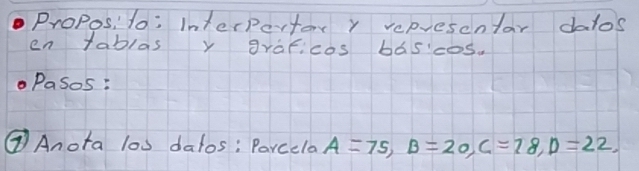 • Proposito: Interpertar y representar datos
en tablas y gráficos básicos.
• Pasos:
① Anota los datos: Parcela A = 15, B = 20, C = 18, D = 22.